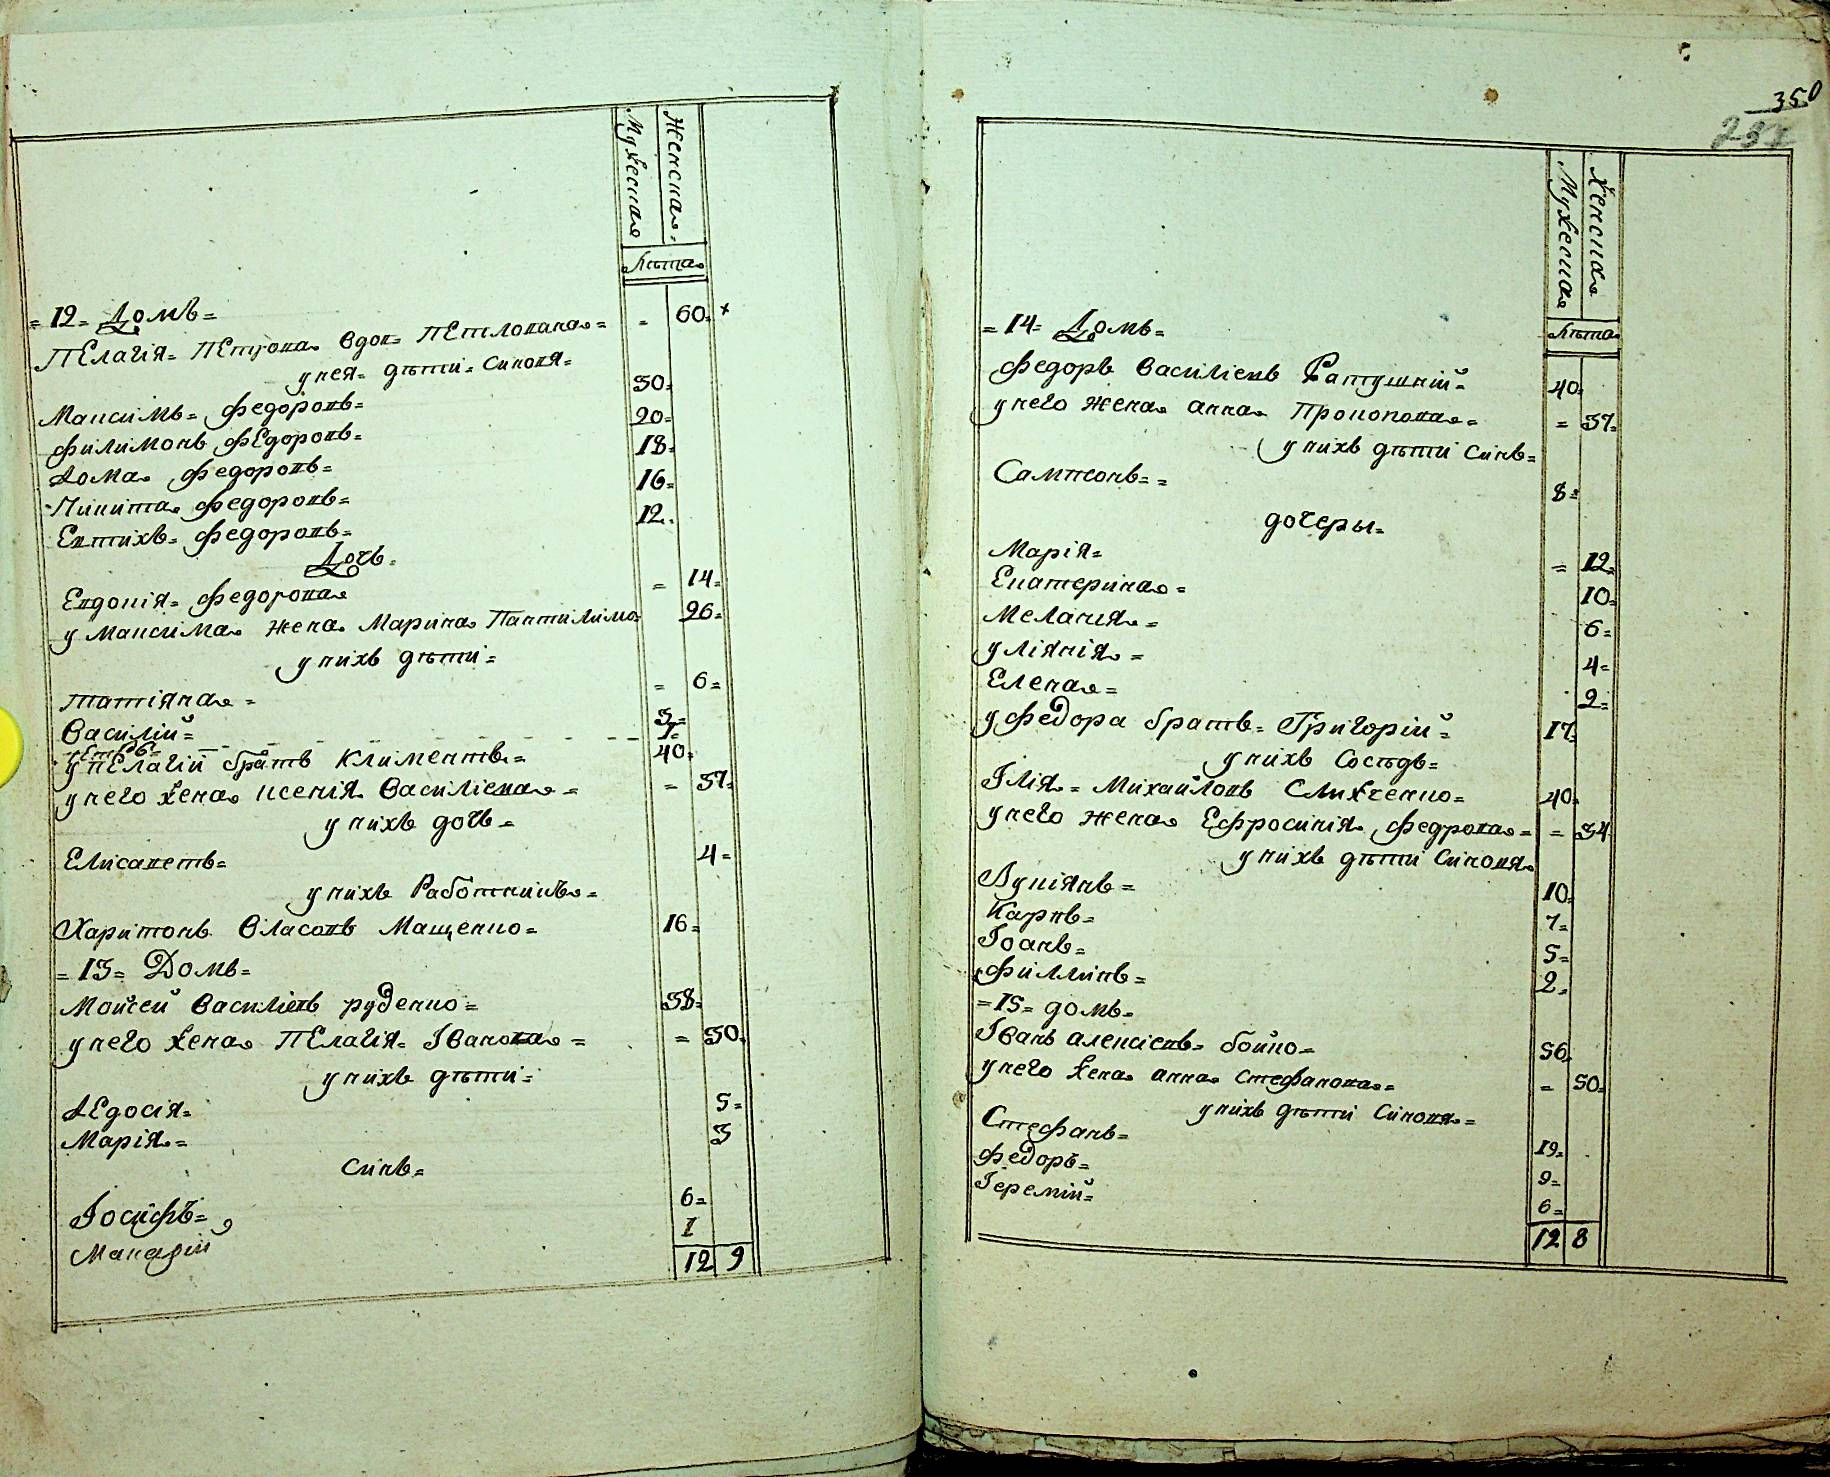 Мужеская
Женская
Лѣта
= 12 = Домъ =
Пелагія = Петрова вдов = Петлована = - 60 = x
у нея = дѣти = синовя =
Максимъ = Федоровъ = 30 =
Филимонъ Федоровъ = 20 =
Ѳома Федоровъ = 18 =
Никита Федоровъ = 16 =
Евтихъ = Федоровъ = 12
Дочъ =
Евдокія = Федорова = 14 =
у Максима жена Марина Пантилимо 26 =
у нихъ дѣти =
Татіяна = = 6 =
Василій = 3 =
Петръ = 1 =
у Пелагіи братъ Климентъ = 40 =
у него жена Ксенія Василіева = = 37 =
у нихъ дочъ =
Елисаветъ = 4 =
у нихъ работникъ =
Харитонъ Власовъ Мащенко = 16 =
= 13 = Домъ =
Мойсей Василіевъ Руденко = 38 =
у него жена Пелагія Іванова = = 30 =
у нихъ дѣти =
Ѳедосія = 5 =
Марія = 3
синъ =
Іосифъ = 6 =
Макарій 1
12 9
350
237
Мужеская
Женская
Лѣта
= 14 = Домъ =
Федоръ Василіевъ Ратушній = 40 =
у него жена Анна Прокопова = = 37 =
у нихъ дѣти синъ =
Сампсонъ = = 8 =
дочеры =
Марія = = 12 =
Екатерина = 10 =
Меланія = 6 =
Уліянія = 4 =
Елена = 2 =
у Федора братъ = Григорій = 17
у нихъ сосѣдъ =
Ілія = Михайловъ Слижченко = 40 =
у него жена Ефросинія Федрова = = 34
у нихъ дѣти синовя =
Лукіянъ = 10 =
Карпъ = 7 =
Іоанъ = 5 =
Филлипъ = 2 =
= 15 = домъ =
Іванъ Алексіевъ = Бойко = 56
у него жена Анна Стефанова = = 50 =
у нихъ дѣти синовя =
Стефанъ = 19 =
Федоръ = 9 =
Іеремій = 6 =
12 8